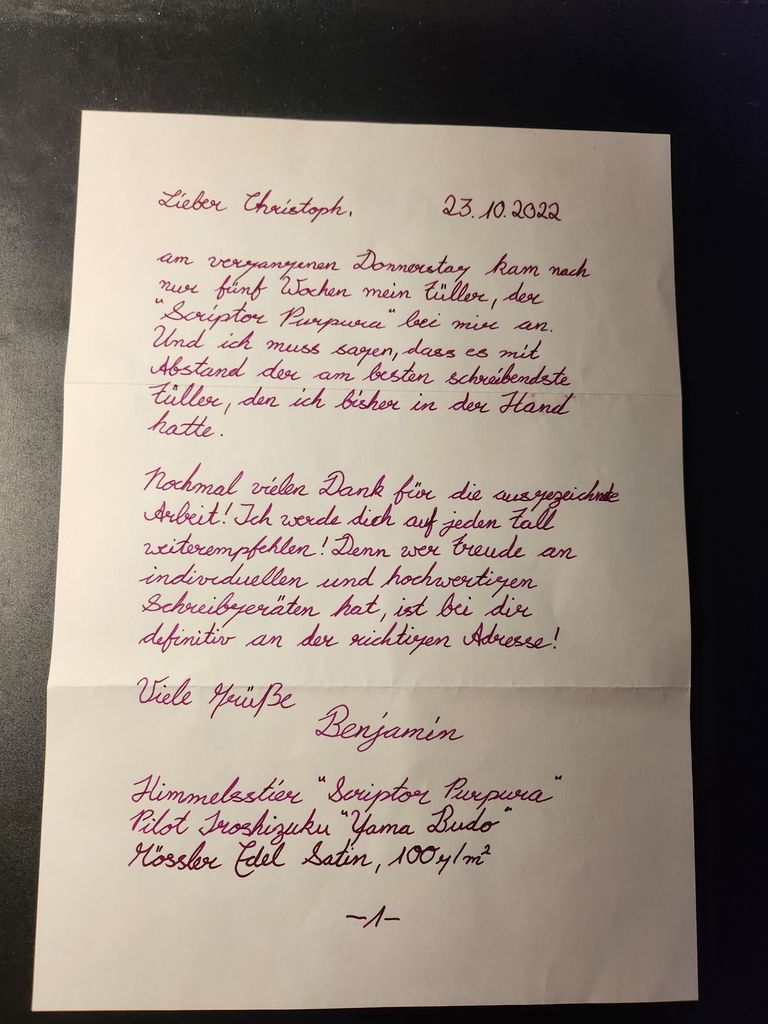 Lieber Christoph, 23.10.2022
am vergangenen Donnerstag kam nach
nur fünf Wochen mein Füller, der
"Scriptor Purpura" bei mir an.
Und ich muss sagen, dass es mit
Abstand der am besten schreibendste
Füller, den ich bisher in der Hand
hatte.
Nochmal vielen Dank für die ausgezeichnete
Arbeit! Ich werde dich auf jeden Fall
weiterempfehlen! Denn wer Freude an
individuellen und hochwertigen
Schreibgeräten hat, ist bei dir
definitiv an der richtigen Adresse!
Viele Grüße
Benjamin
Himmelsstier "Scriptor Purpura"
Pilot Iroshizuku "Yama Budo"
Rössler Edel Satin, 100g/m²
-1-